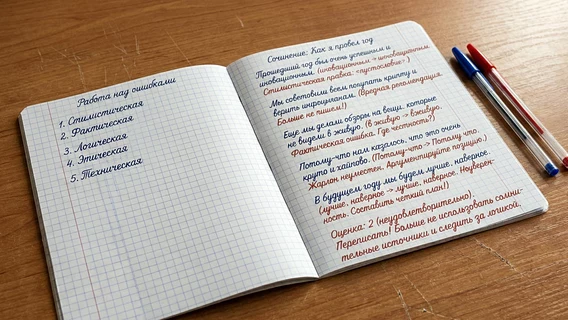 Работа над ошибками
1. Стилистическая
2. Фактическая
3. Логическая
4. Этическая
5. Техническая
Сочинение: Как я провел год
Прошедший год был очень успешным и
иновационным. (иновационным → инновационным.
Стилистическая правка: «пустословие».)
Мы советовали всем покупать крипту и
верить инфоцыганам. (Вредная рекомендация.
Больше не пишем!)
Ещё мы делали обзоры на вещи, которые
не видели в живую. (В живую → вживую.
Фактическая ошибка. Где честность?)
Потому-что нам казалось, что это очень
круто и хайпово. (Потому-что → Потому что,
Жаргон неуместен. Аргументируйте позицию.)
В будущем году мы будем лучше, наверное.
(лучше, наверное → лучше, наверное. Неуверен-
ность. Составить чёткий план!)
Оценка: 2 (неудовлетворительно).
Переписать! Больше не использовать сомни-
тельные источники и следить за логикой.